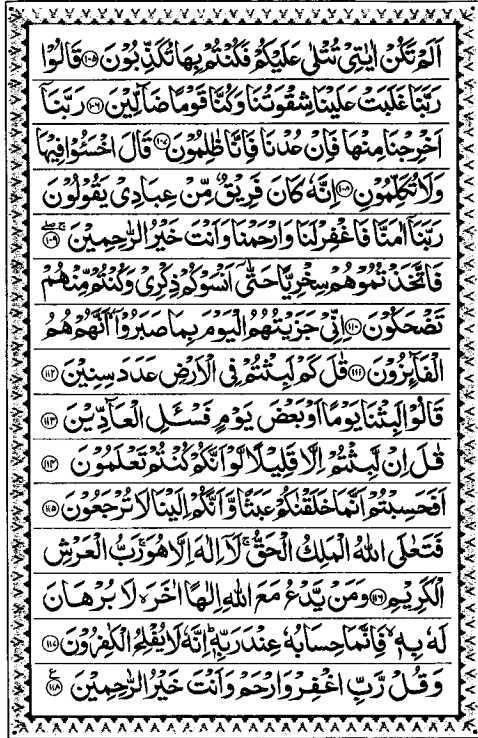 اَلَمْ تَكُنْ اٰيٰتِىْ تُتْلٰى عَلَيْكُمْ فَكُنْتُمْ بِهَا تُكَذِّبُوْنَ ﴿١٠٥﴾ قَالُوْا
رَبَّنَا غَلَبَتْ عَلَيْنَا شِقْوَتُنَا وَكُنَّا قَوْمًا ضَآلِّيْنَ ﴿١٠٦﴾ رَبَّنَاۤ
اَخْرِجْنَا مِنْهَا فَاِنْ عُدْنَا فَاِنَّا ظٰلِمُوْنَ ﴿١٠٧﴾ قَالَ اخْسَـُٔوْا فِيْهَا
وَلَا تُكَلِّمُوْنِ ﴿١٠٨﴾ اِنَّهٗ كَانَ فَرِيْقٌ مِّنْ عِبَادِىْ يَقُوْلُوْنَ
رَبَّنَاۤ اٰمَنَّا فَاغْفِرْ لَنَا وَارْحَمْنَا وَاَنْتَ خَيْرُ الرّٰحِمِيْنَ ﴿١٠٩﴾
فَاتَّخَذْتُمُوْهُمْ سِخْرِيًّا حَتّٰۤى اَنْسَوْكُمْ ذِكْرِىْ وَكُنْتُمْ مِّنْهُمْ
تَضْحَكُوْنَ ﴿١١٠﴾ اِنِّىْ جَزَيْتُهُمُ الْيَوْمَ بِمَا صَبَرُوْۤا اَنَّهُمْ هُمُ
الْفَآئِزُوْنَ ﴿١١١﴾ قٰلَ كَمْ لَبِثْتُمْ فِى الْاَرْضِ عَدَدَ سِنِيْنَ ﴿١١٢﴾
قَالُوْا لَبِثْنَا يَوْمًا اَوْ بَعْضَ يَوْمٍ فَسْـَٔلِ الْعَآدِّيْنَ ﴿١١٣﴾
قٰلَ اِنْ لَّبِثْتُمْ اِلَّا قَلِيْلًا لَّوْ اَنَّكُمْ كُنْتُمْ تَعْلَمُوْنَ ﴿١١٤﴾
اَفَحَسِبْتُمْ اَنَّمَا خَلَقْنٰكُمْ عَبَثًا وَّاَنَّكُمْ اِلَيْنَا لَا تُرْجَعُوْنَ ﴿١١٥﴾
فَتَعٰلَى اللّٰهُ الْمَلِكُ الْحَقُّ ۚ لَاۤ اِلٰهَ اِلَّا هُوَ ۚ رَبُّ الْعَرْشِ
الْكَرِيْمِ ﴿١١٦﴾ وَمَنْ يَّدْعُ مَعَ اللّٰهِ اِلٰهًا اٰخَرَ ۙ لَا بُرْهَانَ
لَهٗ بِهٖ ۙ فَاِنَّمَا حِسَابُهٗ عِنْدَ رَبِّهٖ ؕ اِنَّهٗ لَا يُفْلِحُ الْكٰفِرُوْنَ ﴿١١٧﴾
وَقُلْ رَّبِّ اغْفِرْ وَارْحَمْ وَاَنْتَ خَيْرُ الرّٰحِمِيْنَ ﴿١١٨﴾ ع